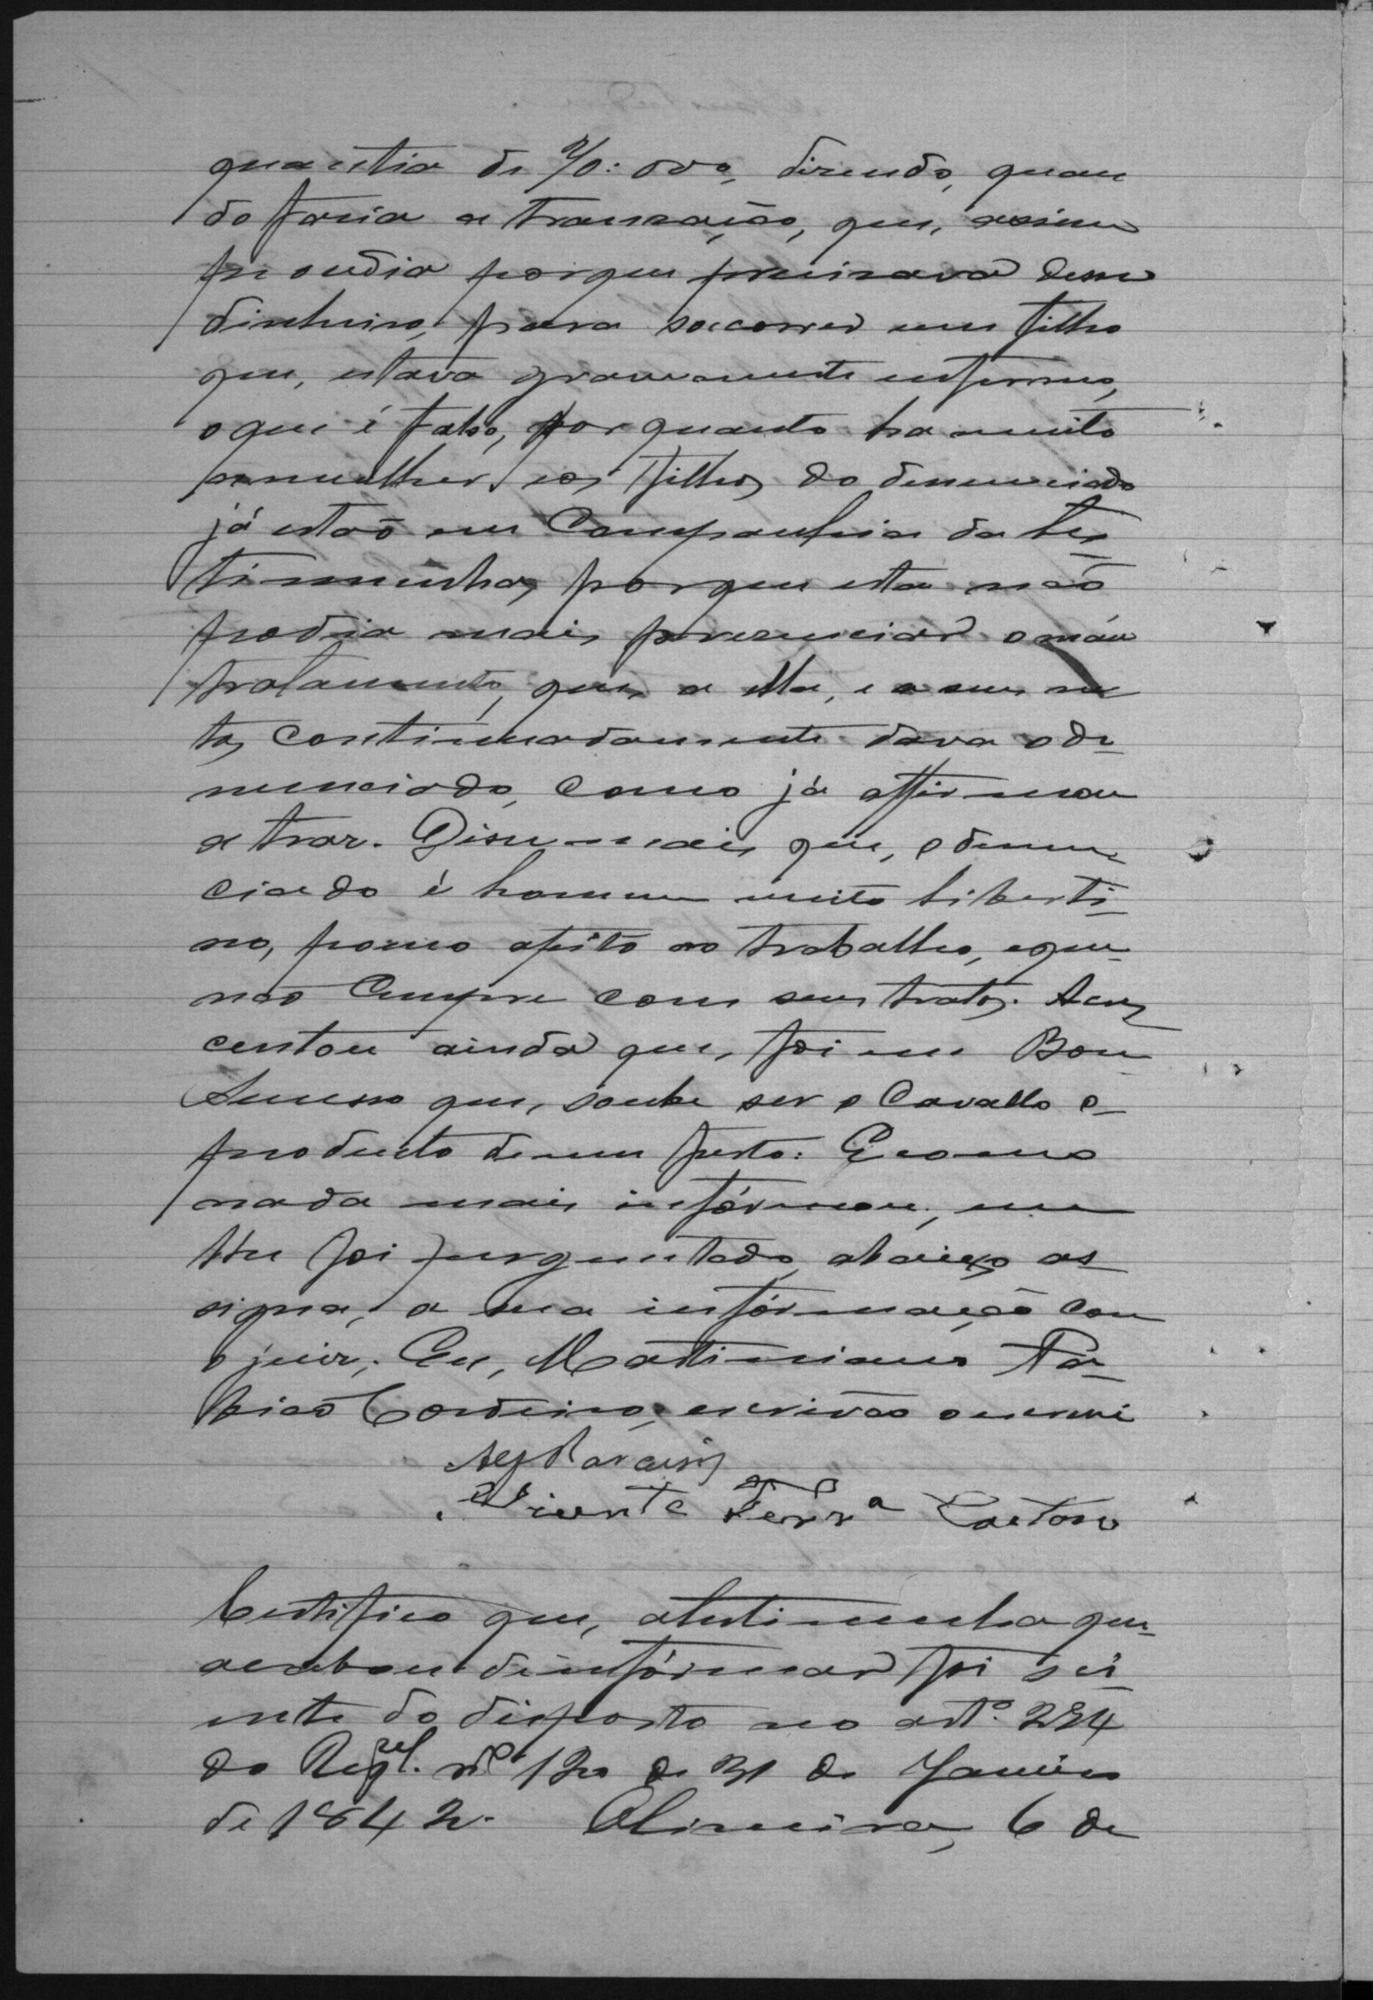 quantia de 70:000, dizendo, quan
do fazia a transação, que, assim
procedia porque precisava desse
dinheiro, para soccorrer um filho
que, estava gravemente enfermo,
o que é falso, por quanto ha muito
a mulher e os filhos do denunciado
já estaõ em Companhia da tes
timunha, porque esta naõ
podia mais presenciar o máu
tratamento, que, a ella, e a seus ne
tos continuadamente dava o de-
nunciado, como já affirmou
atraz. Disse mais que, o denun-
ciado é homem muito liberti-
no, pouco afeito ao trabalho, e que
naõ Cumpre com seus tratos. Acres
centou ainda que, foi em Bom
Sucesso que, soube ser o Cavallo o
producto de um furto. E como
nada mais infórmou, nem
lhe foi perguntado, abaixo as-
signa, a sua infórmação com
o juiz. Eu, Martiniano Fa-
biaõ Cordeiro, escrivão o escrevi
Vicente Ferrª Caetano
Certifico que, a testimunha que
acabou de infórmar foi sci-
ente do disposto no artº. 294
do Regul. nº 120 de 31 de Janeiro
de 1842. Oliveira, 6 de